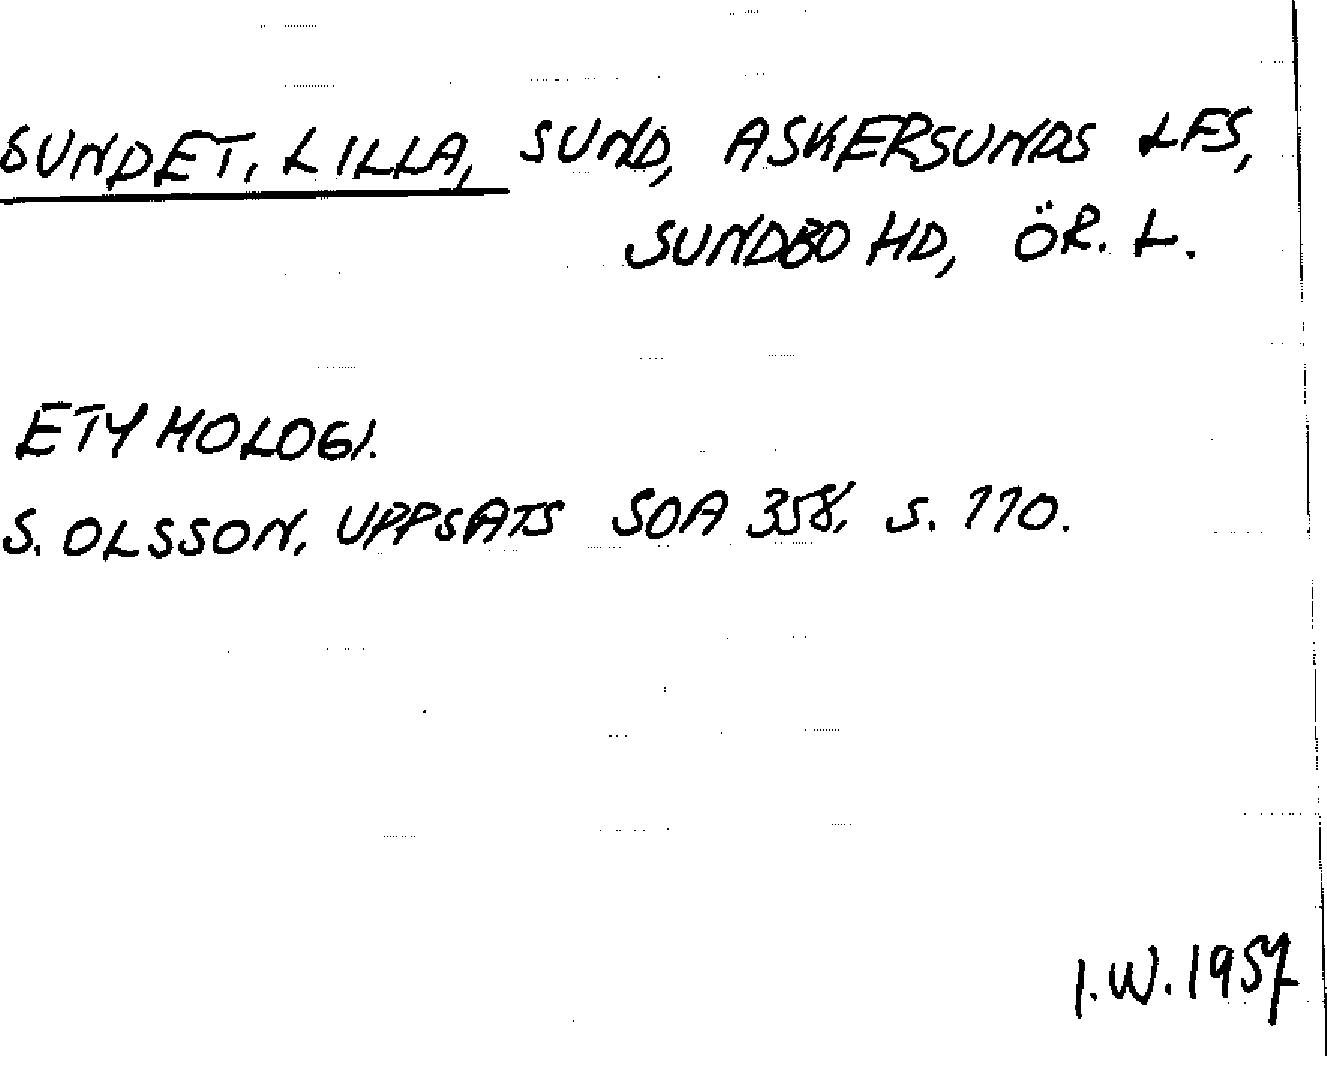 SUNDET, LILLA, SUND, ASKERSUNDS LFS,
SUNDBO HD, ÖR. L.
ETYMOLOGI.
S. OLSSON, UPPSATS SOA 358, s. 110.
I.W. 1957